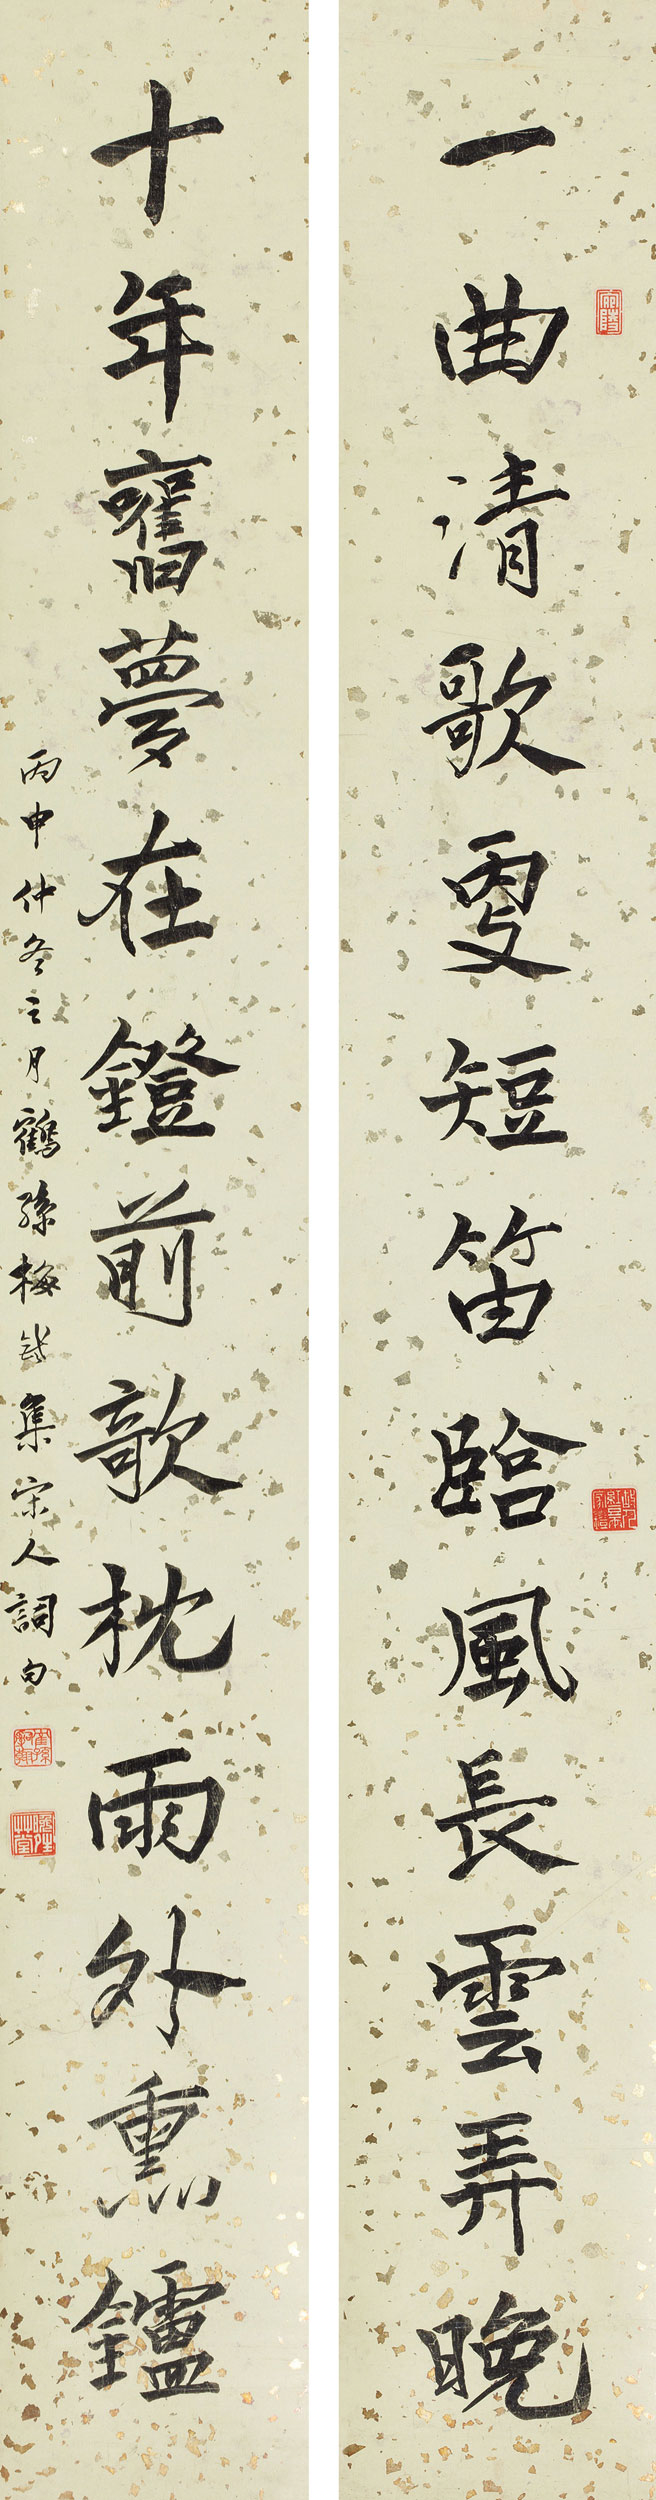 一曲清歌更短笛臨風長雲弄晚
宛陵
十年舊夢在鐙前歌枕雨外熏鑪
丙申仲冬之月鶴孫梅 集宋人詞句